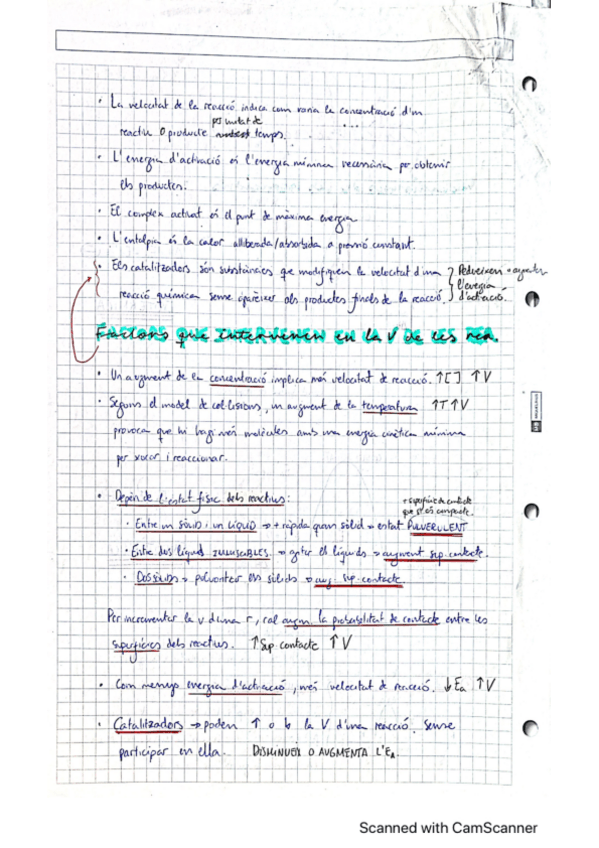 · La velocitat de la reacció indica com varia la concentració d'un
per unitat de
reactiu O producte temps.
· L'energia d'activació és l'energia mínima necessària per obtenir
els productes.
· El complex activat és el punt de màxima energia
· L'entalpia és la calor alliberada/absorbida a pressió constant.
· Els catalitzadors són substàncies que modifiquen la velocitat d'una } Redueixen o augmenten
reacció química sense aparèixer als productes finals de la reacció. } l'energia
d'activació.
FACTORS QUE INTERVENEN EN LA V DE LES REA.
· Un augment de la concentració implica més velocitat de reacció. ↑[ ] ↑V
· Segons el model de col·lisions, un augment de la temperatura ↑T↑V
provoca que hi hagi més molècules amb una energia cinètica mínima
per xocar i reaccionar.
· Depèn de l'estat físic dels reactius:
+ superfície de contacte
que si és compacte
· Entre un SÒLID i un LÍQUID → + ràpida quan sòlid → estat PULVERULENT
· Entre dos líquids IMMISCIBLES → agitar els líquids → augment sup. contacte.
· DOS SÒLIDS → polvoritzar els sòlids → aug. sup. contacte
Per incrementar la v d'una r, cal augm. la probabilitat de contacte entre les
superfícies dels reactius. ↑Sup. contacte ↑V
· Com menys energia d'activació, més velocitat de reacció. ↓Ea ↑V
· Catalitzadors → poden ↑ o ↓ la V d'una reacció. Sense
participar en ella. DISMINUEIX O AUGMENTA L'EA
Scanned with CamScanner